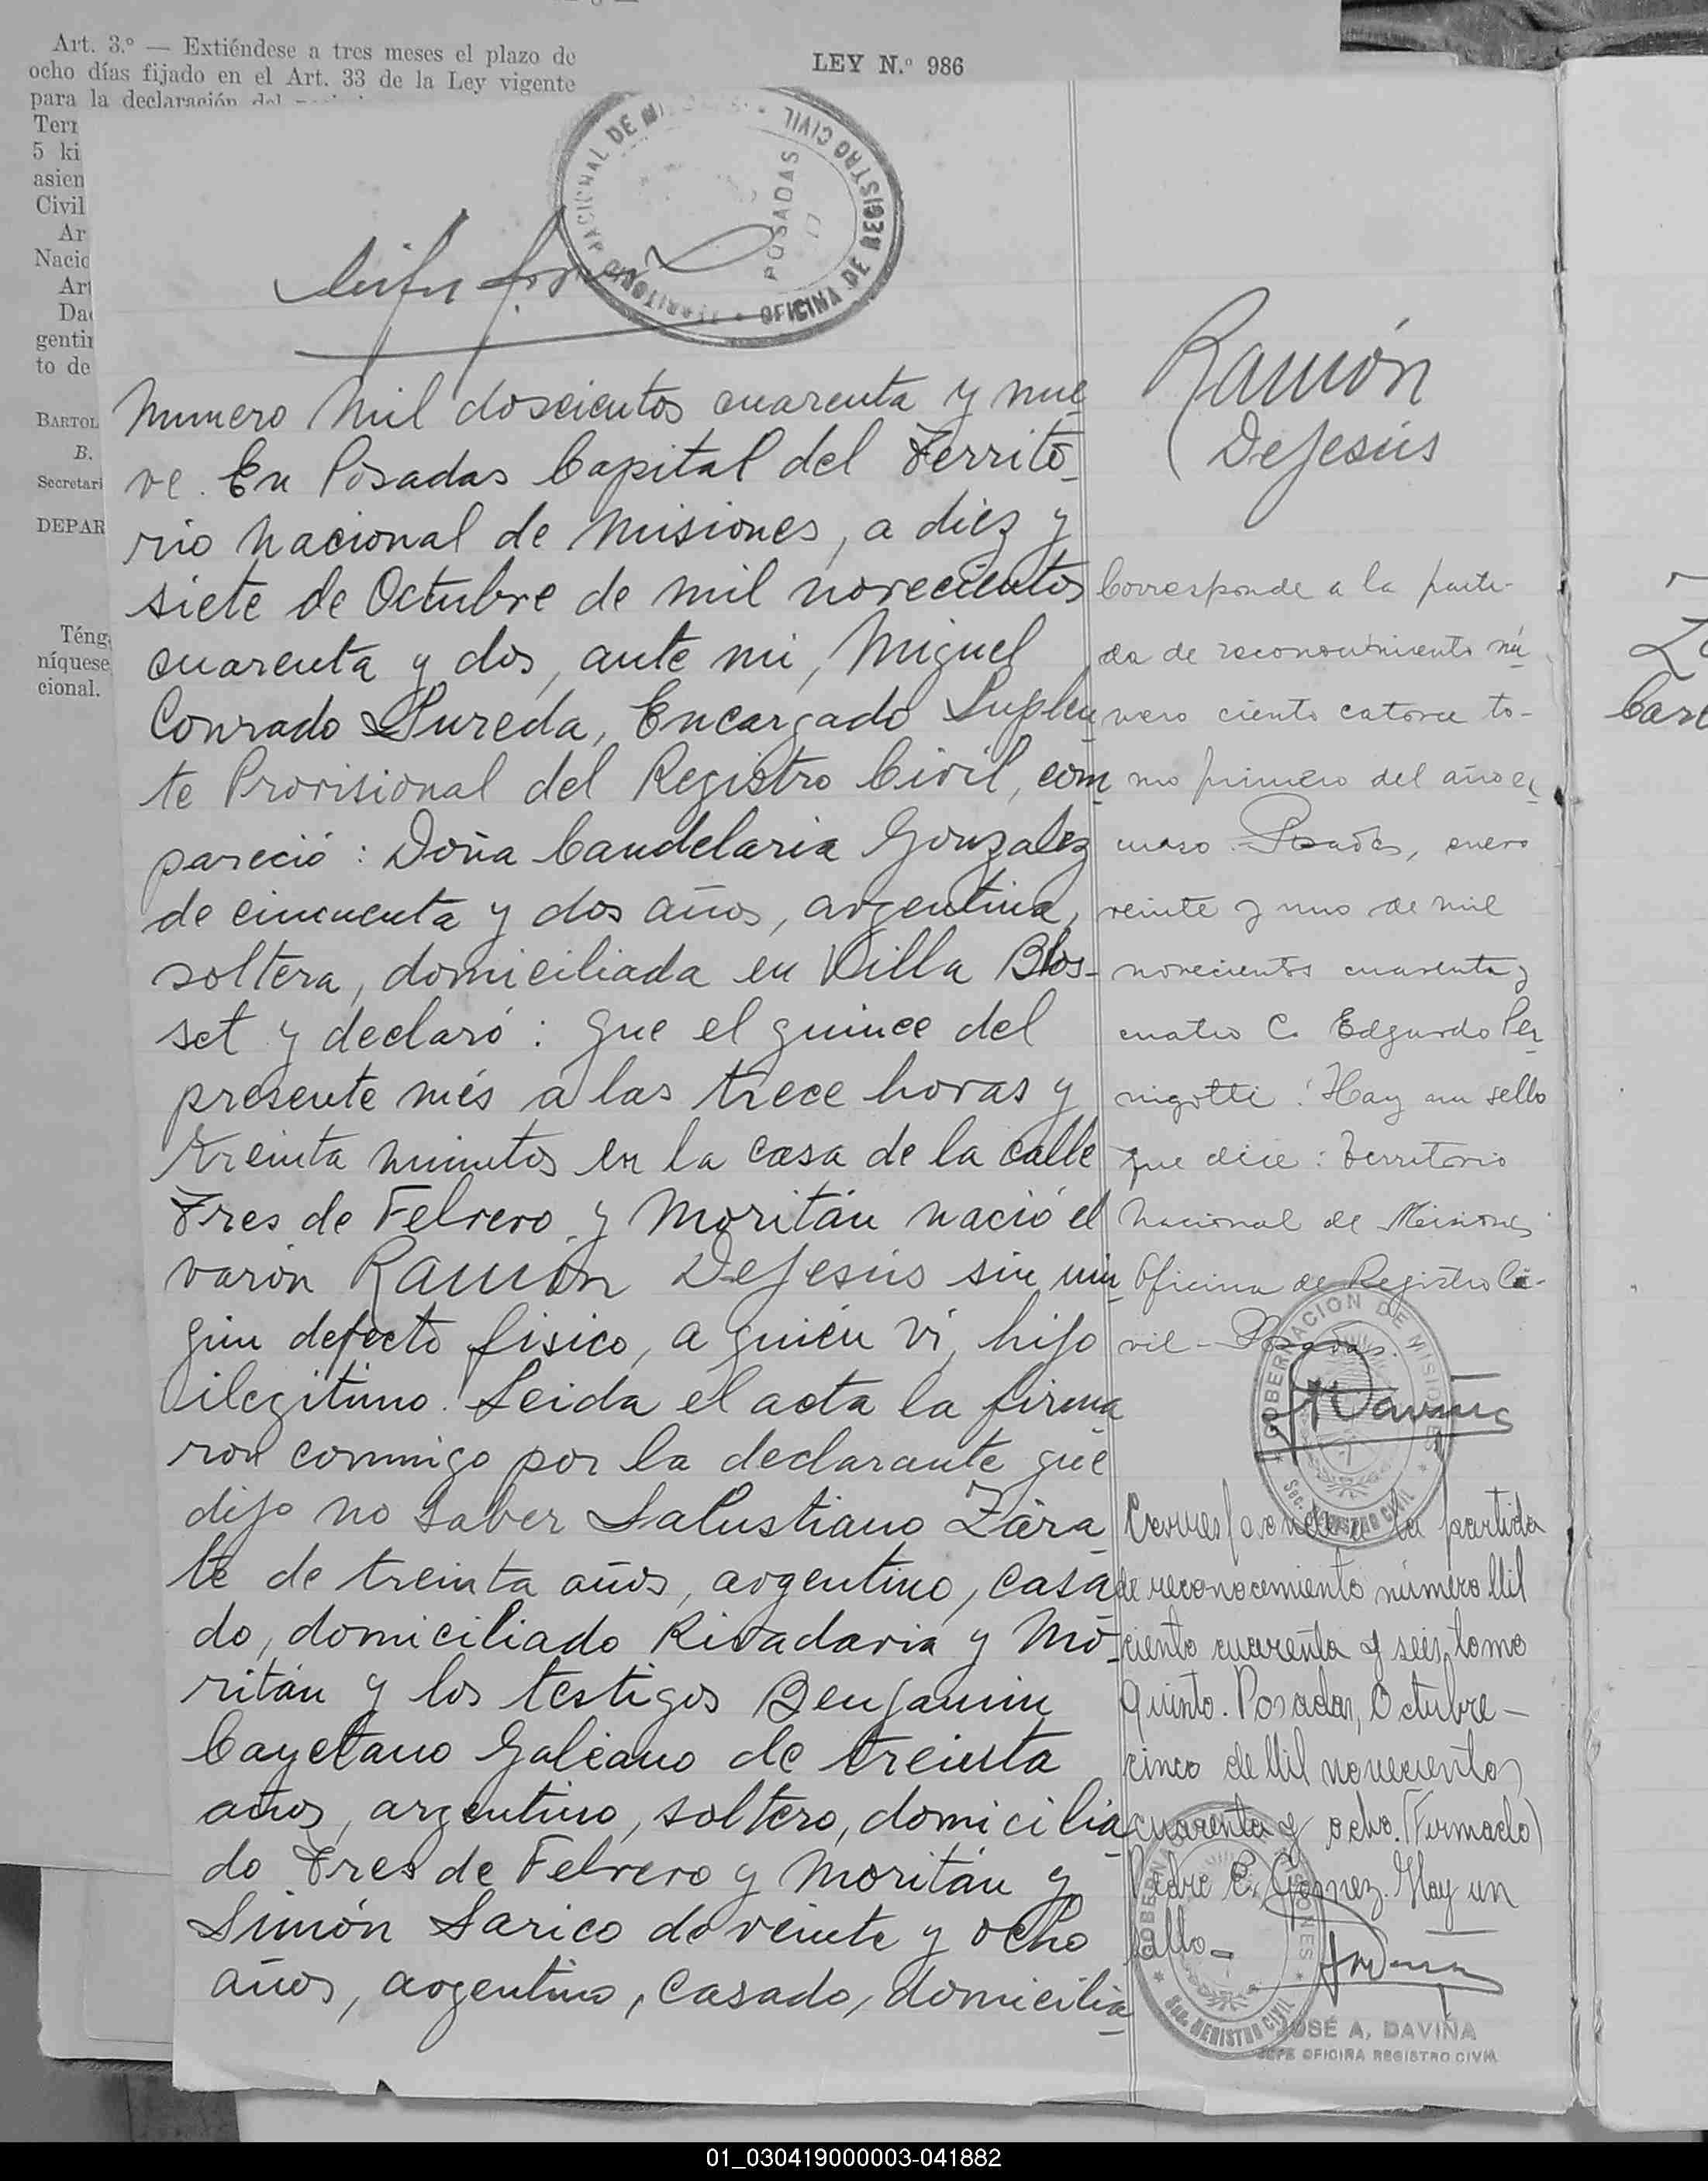 Art. 3.° — Extiéndese a tres meses el plazo de
ocho días fijado en el Art. 33 de la Ley vigente
para la declaración del
Terr
5 ki
asien
Civil
Ar
Nacio
Art
Da
gentin
to de
BARTOL
B.
Secretari
DEPAR
Téng
níquese
cional.
LEY N.° 986
OFICINA DE REGISTRO CIVIL
TERRITORIO NACIONAL DE MI
POSADAS
17
Numero Mil doscientos cuarenta y nue-
ve. En Posadas Capital del Territo-
rio Nacional de Misiones, a diez y
siete de Octubre de mil novecientos
cuarenta y dos, ante mi, Miguel
Conrado Sureda, Encargado Suplen-
te Provisional del Registro Civil, com-
pareció: Doña Candelaria Gonzalez
de cincuenta y dos años, argentina,
soltera, domiciliada en Villa Blos-
set y declaró: Que el quince del
presente més a las trece horas y
treinta minutos en la casa de la calle
Tres de Febrero y Moritán nació el
varón Ramón DeJesús sin nin-
gún defecto físico, a quién ví, hijo
ilegitimo. Leida el acta la firma
ron conmigo por la declarante que
dijo no saber Salustiano Zára-
te de treinta años, argentino, casa-
do, domiciliado Rivadavia y Mo-
ritán y los testigos Benjamin
Cayetano Galeano de treinta
años, argentino, soltero, domicilia-
do Tres de Febrero y Moritán y
Simón Sarico de veinte y ocho
años, argentino, casado, domicilia-
Ramón
DeJesús
Corresponde a la parti-
da de reconocimiento nú-
mero ciento catorce to-
mo primero del año en
curso. Posadas, enero
veinte y uno de mil
novecientos cuarenta y
cuatro C. Edgardo Per
nigotti. Hay un sello
que dice: Territorio
Nacional de Misiones
Oficina de Registro Ci-
vil - Posadas.
GOBERNACION DE MISIONES
Sec. REGISTRO CIVIL
Corresponde a la partida
de reconocimiento número Mil
ciento cuarenta y seis, tomo
Quinto. Posadas, Octubre -
cinco de Mil novecientos
cuarenta y ocho. (Firmado)
Pedro E. Gomez. Hay un
sello-
GOBERNA MISIONES
Sec. REGISTRO CIVIL
JOSÉ A. DAVIÑA
JEFE OFICINA REGISTRO CIVIL
Carl
01_030419000003-041882